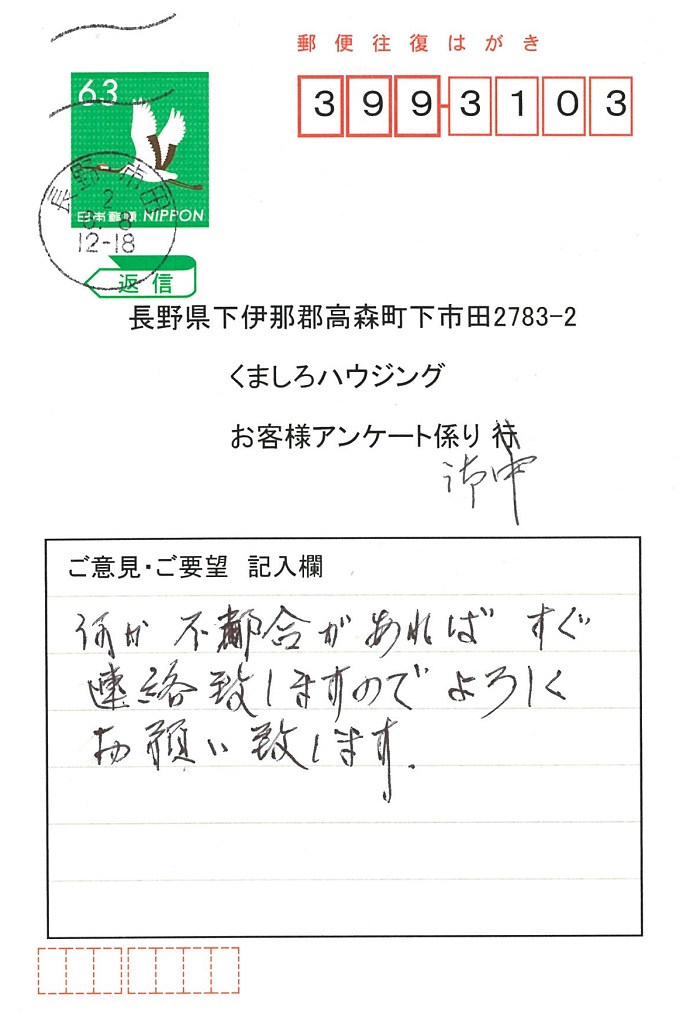 郵便往復はがき
63
399-3103
長野 市田
2
8. 8
12-18
日本郵便 NIPPON
返信
長野県下伊那郡高森町下市田2783-2
くましろハウジング
お客様アンケート係り 行
御中
ご意見・ご要望 記入欄
何か不都合があればすぐ
連絡致しますのでよろしく
お願い致します.